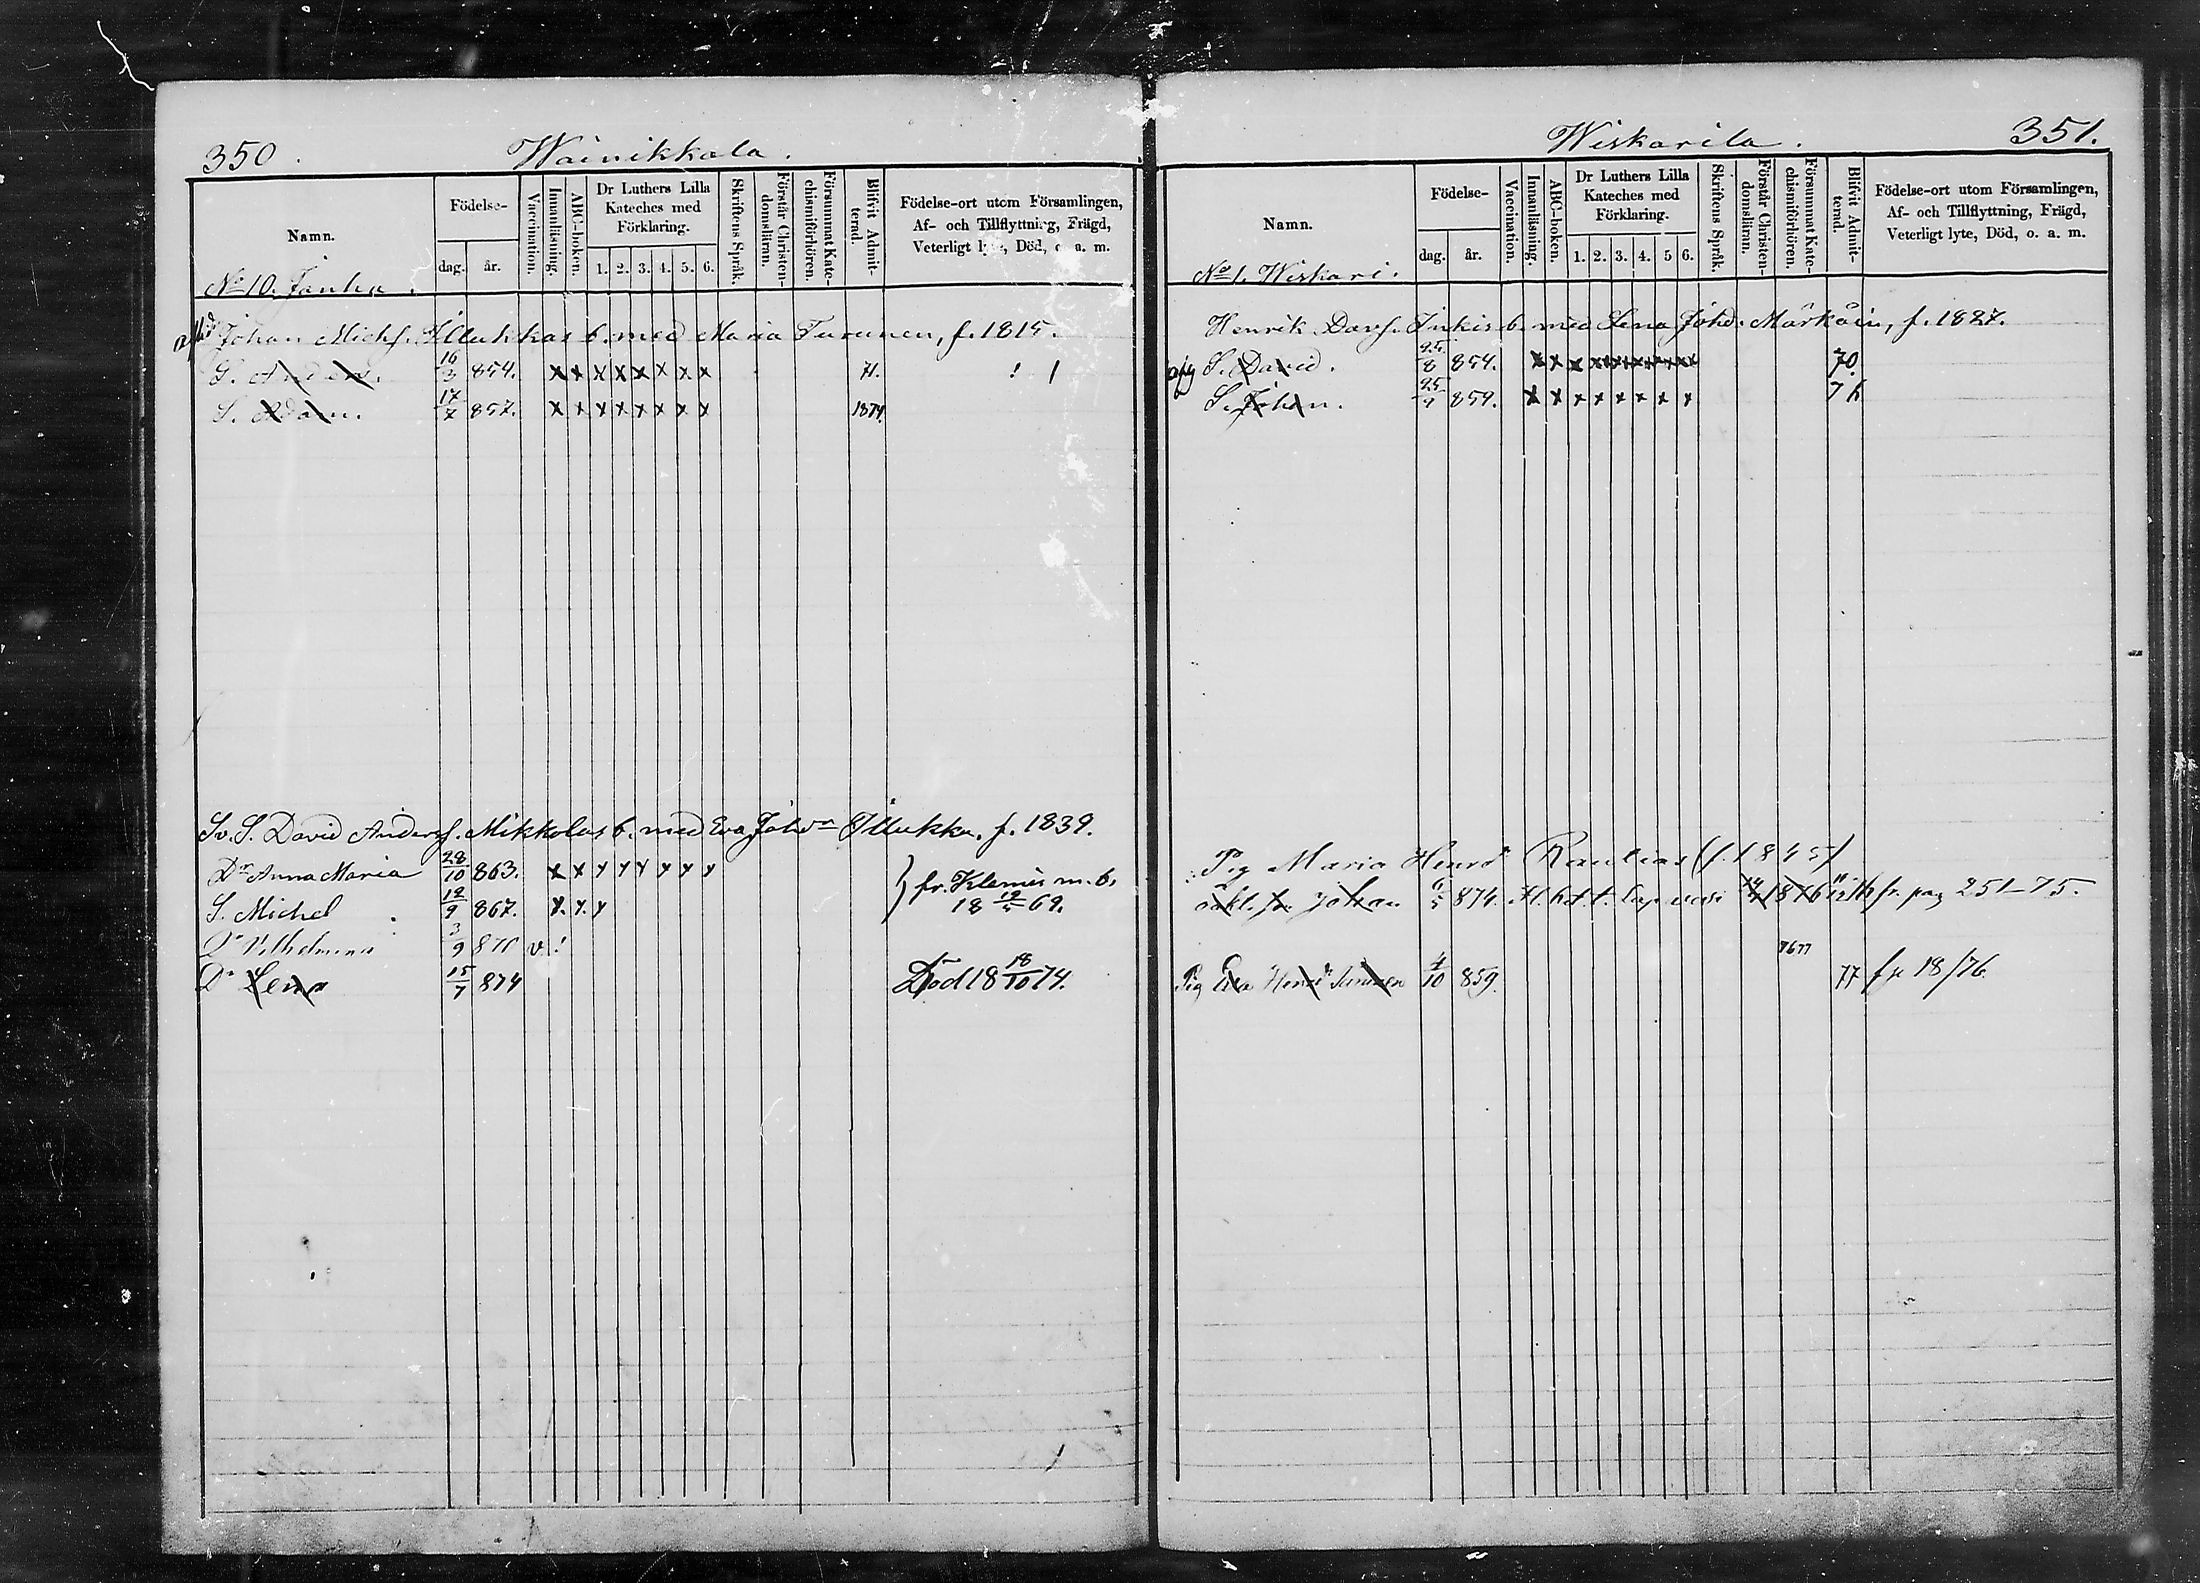 350.
Wainikkala.
Namn.
Födelse-
dag.
år.
Vaccination.
Innanläsning.
ABC-boken.
Dr Luthers Lilla
Kateches med
Förklaring.
1. 2. 3. 4. 5. 6.
Skriftens Språk.
Förstår Christen-
domsläran.
Försummat Kate-
chismiförhören.
Blifvit Admit-
terad.
Födelse-ort utom Församlingen,
Af- och Tillflyttning, Frägd,
Veterligt lyte, Död, o. a. m.
No 10. Janha.
Johan Michs. Illukkas b. med Maria Turunen, f. 1815.
S. Anders. 16/3 854. x x x x x x x x 71.
S. Adam. 17/7 857. x x x x x x x x 1874.
Sv. S. David Anderss. Mikkolas b. med Eva Johdr Illukka, f. 1839.
Dr Anna Maria 28/10 863. x x y y y y y y } fr. Klemis m. b.
S. Michel 12/9 867. y. y. y 18 12/5 69.
Dr Vilhelmina 3/9 871 v !
Dr Lena 15/7 874 Död 18 18/10 74.
Wiskarila.
351.
Namn.
Födelse-
dag.
år.
Vaccination.
Innanläsning.
ABC-boken.
Dr Luthers Lilla
Kateches med
Förklaring.
1. 2. 3. 4. 5 6.
Skriftens Språk.
Förstår Christen-
domsläran.
Försummat Kate-
chismiförhören.
Blifvit Admit-
terad.
Födelse-ort utom Församlingen,
Af- och Tillflyttning, Frägd,
Veterligt lyte, Död, o. a. m.
No 1. Wiskari.
Henrik Davs. Inkis b. med Lena Johd. Märkäin, f. 1827.
S. David. 25/8 854. x x x x x x x x 70.
S. Johan. 25/1 859. x x x x x x x x 76
Pig Maria Henrdr Raulias (f. 1845)
oäkt. son Johan 6/5 874. fr. pag 251-75.
7677
Pig Eva Henrdr 4/10 859. 77 fr 18/76.